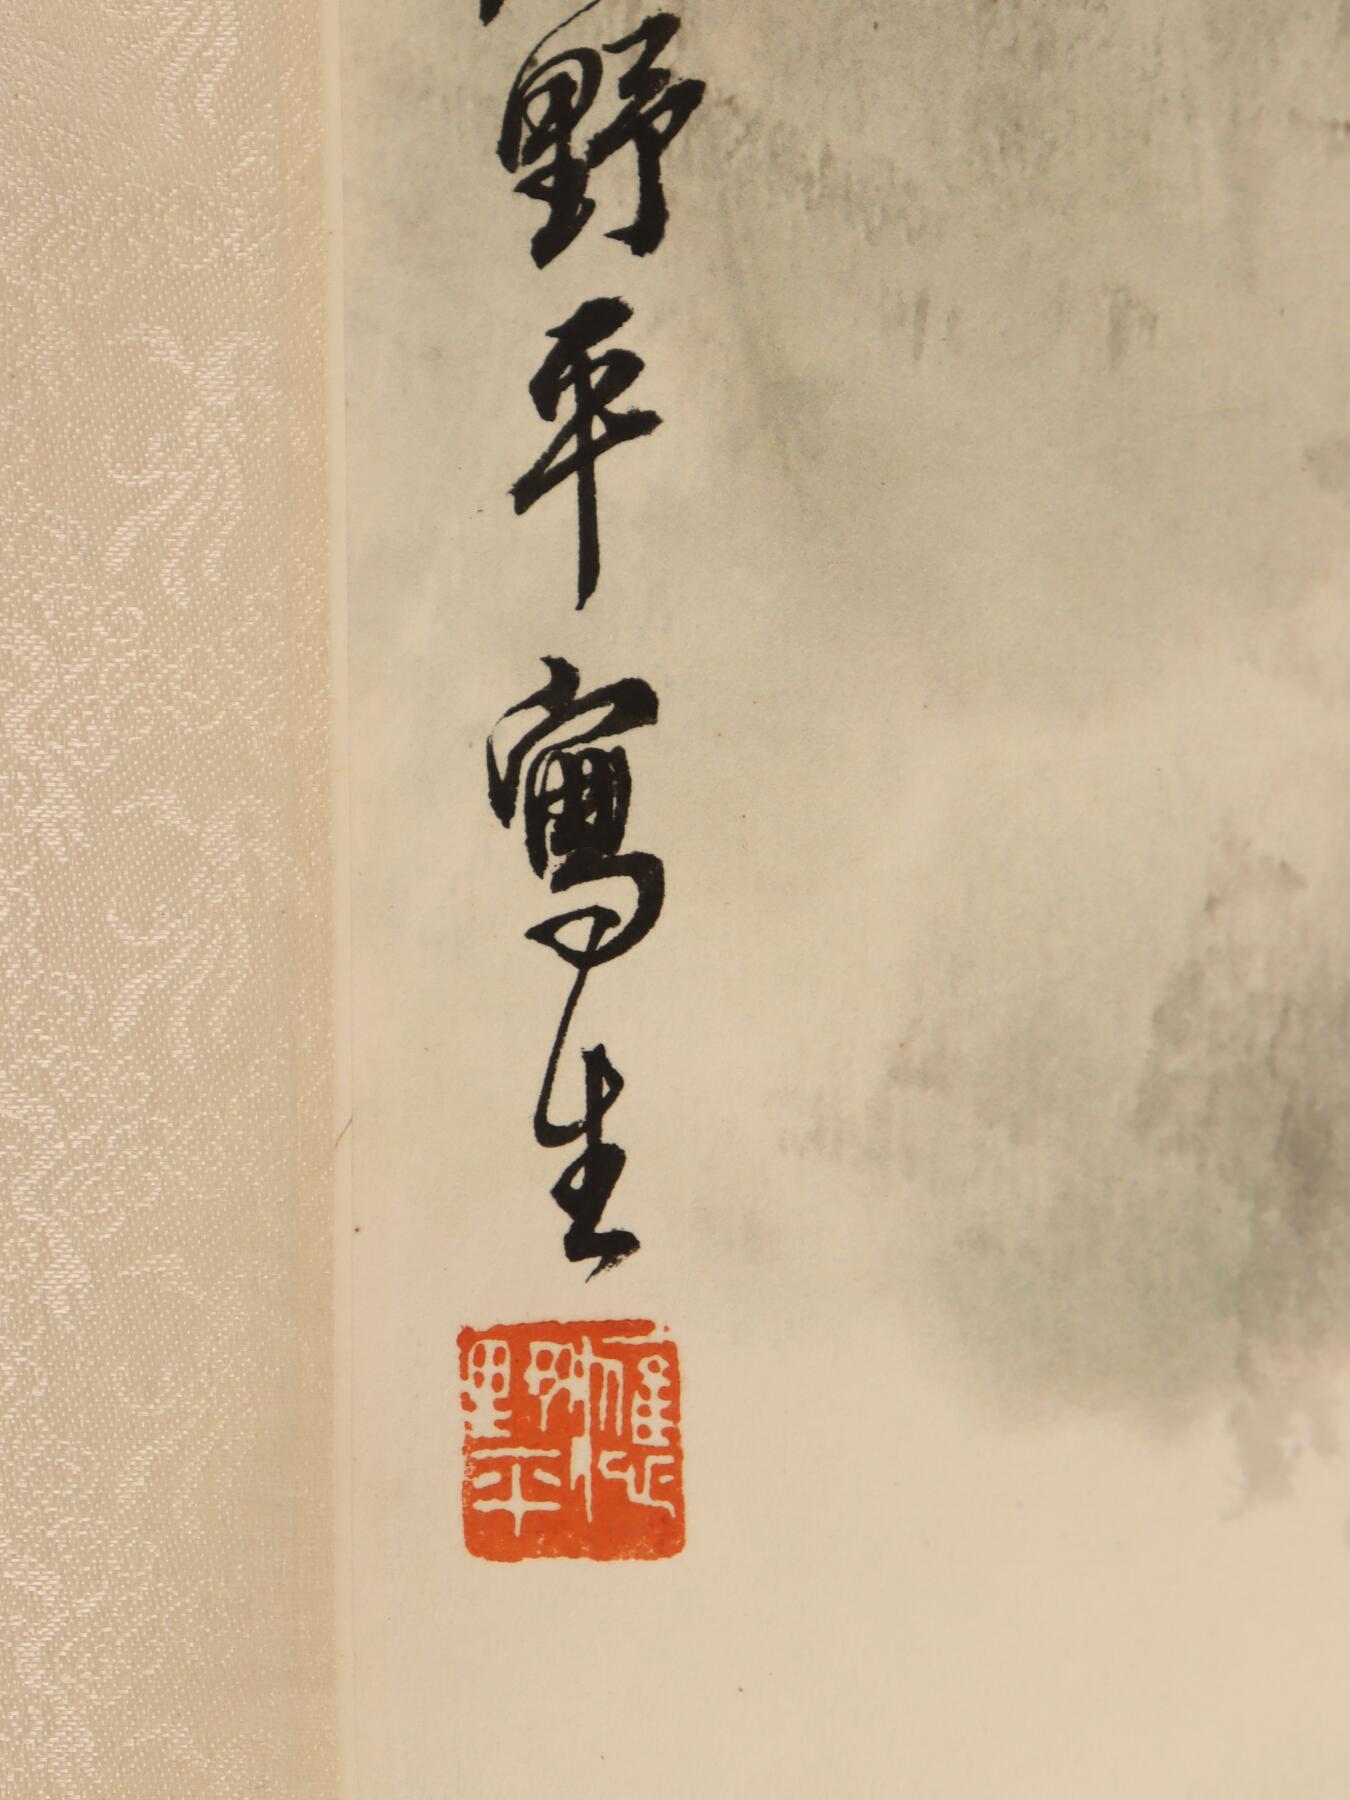 野平寫生
野平